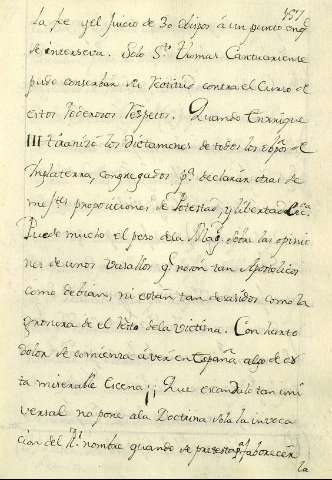 157
la fe y el juicio de 30 obispos á un punto en q.
se interseva. Solo S.to Thomas Cantuariense
pudo conservar su rectitud contra el curso de
estos Poderosos respetos. Quando Enrrique
III tiranizó los dictamenes de todos los obpos. de
Inglaterra, congregados p.a declarar otras se
mejtes proposiciones de Potestad, y libertad
Puede mucho el peso de la Mag.d sobre las opinio
nes de unos vasallos q.e no son tan Apostolicos
como debian, ni estan tan desasidos como la
de el resto de la victima. Con harto
dolor se comienza á ver en España algo de es
ta miserable Escena ¡¡ Que escandalo tan uni
versal no pone a la Doctrina sola la invoca
cion del R.l nombre quando se pretesta p.a faborecer
la